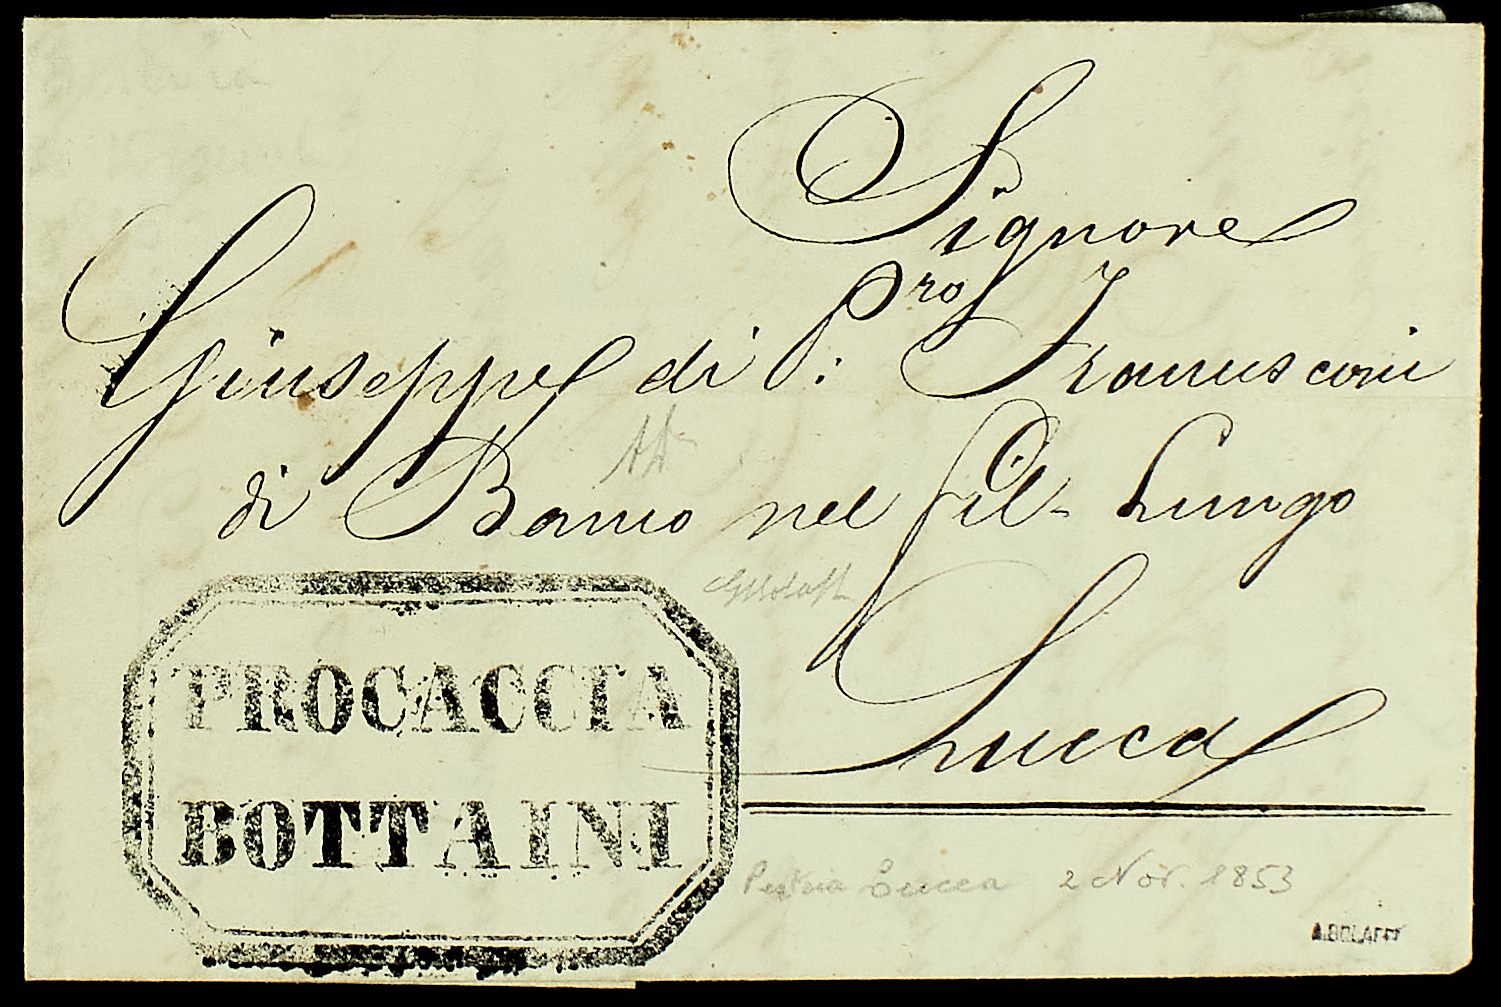 Signore
Giuseppe di P: Pro Franusconi
di Banco nel fil-Lungo
Lucca
PROCACCIA
BOTTAINI
Pescia Lucca 2 Nov. 1853
A.BOLAFFI